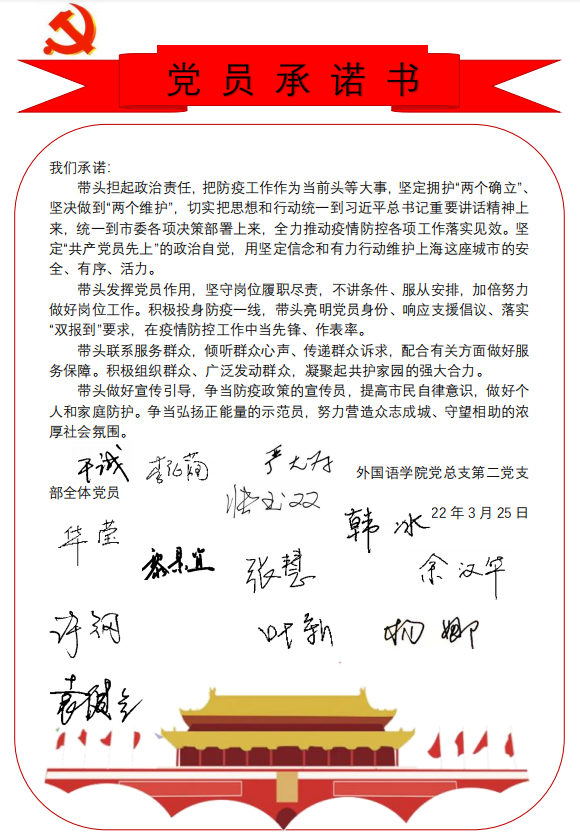 党员承诺书
我们承诺：
带头担起政治责任，把防疫工作作为当前头等大事，坚定拥护“两个确立”、
坚决做到“两个维护”，切实把思想和行动统一到习近平总书记重要讲话精神上
来，统一到市委各项决策部署上来，全力推动疫情防控各项工作落实见效。坚
定“共产党员先上”的政治自觉，用坚定信念和有力行动维护上海这座城市的安
全、有序、活力。
带头发挥党员作用，坚守岗位履职尽责，不讲条件、服从安排，加倍努力
做好岗位工作。积极投身防疫一线，带头亮明党员身份、响应支援倡议、落实
“双报到”要求，在疫情防控工作中当先锋、作表率。
带头联系服务群众，倾听群众心声、传递群众诉求，配合有关方面做好服
务保障。积极组织群众、广泛发动群众，凝聚起共护家园的强大合力。
带头做好宣传引导，争当防疫政策的宣传员，提高市民自律意识，做好个
人和家庭防护。争当弘扬正能量的示范员，努力营造众志成城、守望相助的浓
厚社会氛围。
外国语学院党总支第二党支
部全体党员
22年3月25日
韩冰
华莹
张慧
余汉华
许钢
叶新
杨娜